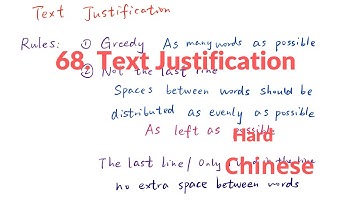 Text Justification
Rules: ① Greedy As many words as possible
68. Text Justification
② Not the last line
Spaces between words should be
distributed as evenly as possible
As left as possible
Hard
The last line / Only 1 word in the line
Chinese
no extra space between words